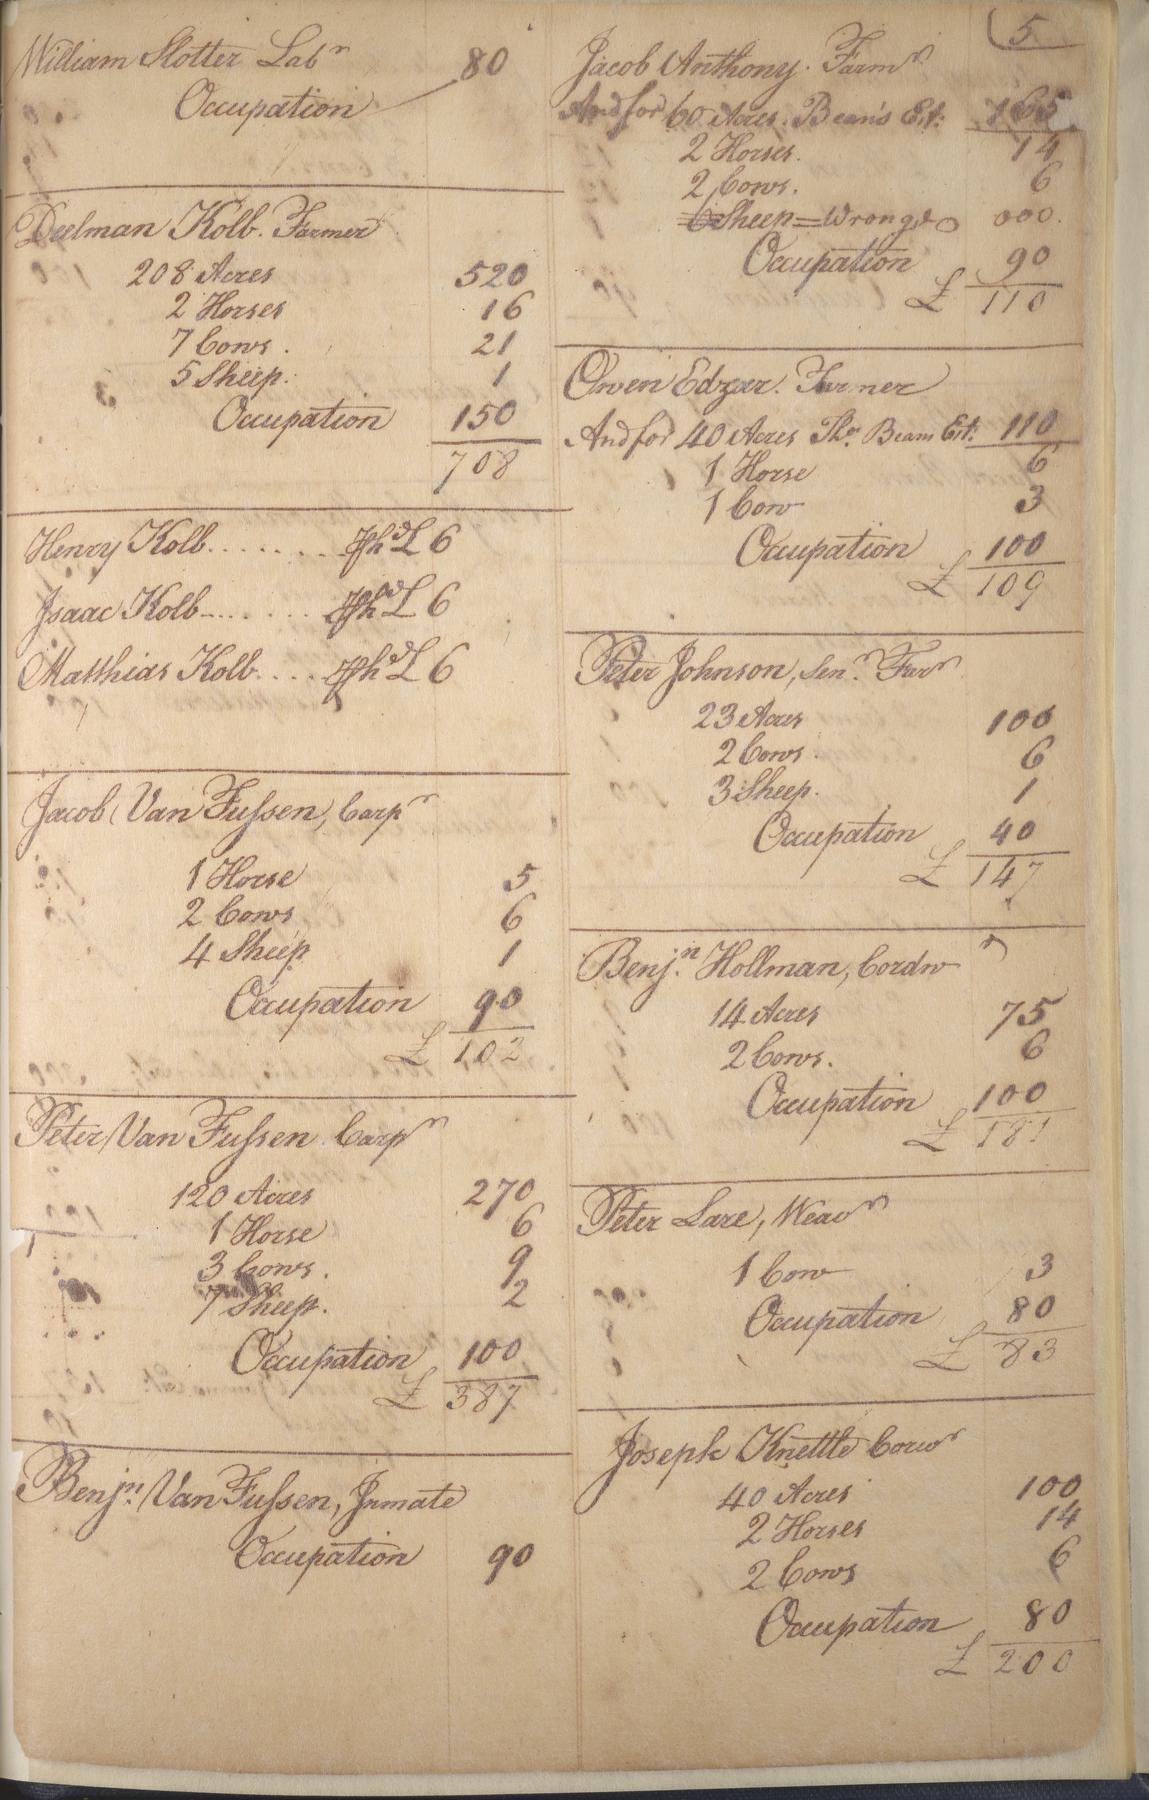 5
William Slotter Labr
80
Occupation
Deelman Kolb. Farmer
208 Acres 520
2 Horses 16
7 Cows. 21
5 Sheep. 1
Occupation 150
708
Henry Kolb........ £ 6
Isaac Kolb....... £ 6
Matthias Kolb.... £ 6
Jacob Van Fussen, Carpr
1 Horse 5
2 Cows 6
4 Sheep 1
Occupation 90
£ 102
Peter Van Fussen Carpr
120 Acres 270
1 Horse 6
3 Cows. 9
7 Sheep. 2
Occupation 100
£ 387
Benjn. Van Fussen, Inmate
Occupation 90
Jacob Anthony. Farmr
And for 60 Acres. Bean's Est: 165
2 Horses. 14
2 Cows. 6
6 Sheep = Wrong 000.
Occupation 90
£ 110
Owen Edgar. Farmer
And for 40 Acres Thos. Beans Est: 110
1 Horse 6
1 Cow 3
Occupation 100
£ 109
Peter Johnson, Senr. Farr
23 Acres 100
2 Cows. 6
3 Sheep. 1
Occupation 40
£ 147
Benjn. Hollman, Cordwr
14 Acres 75
2 Cows. 6
Occupation 100
£ 181
Peter Lare, Weavr
1 Cow 3
Occupation 80
£ 83
Joseph Knettle Corwr
40 Acres 100
2 Horses 14
2 Cows 6
Occupation 80
£ 200